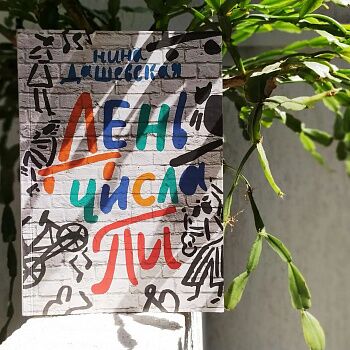 нина
дашевская
день
числа
пи